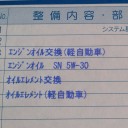 整備内容・部
システム
エンジンオイル交換(軽自動車)
エンジンオイル SN 5W-30
オイルエレメント交換
オイルエレメント(軽自動車)